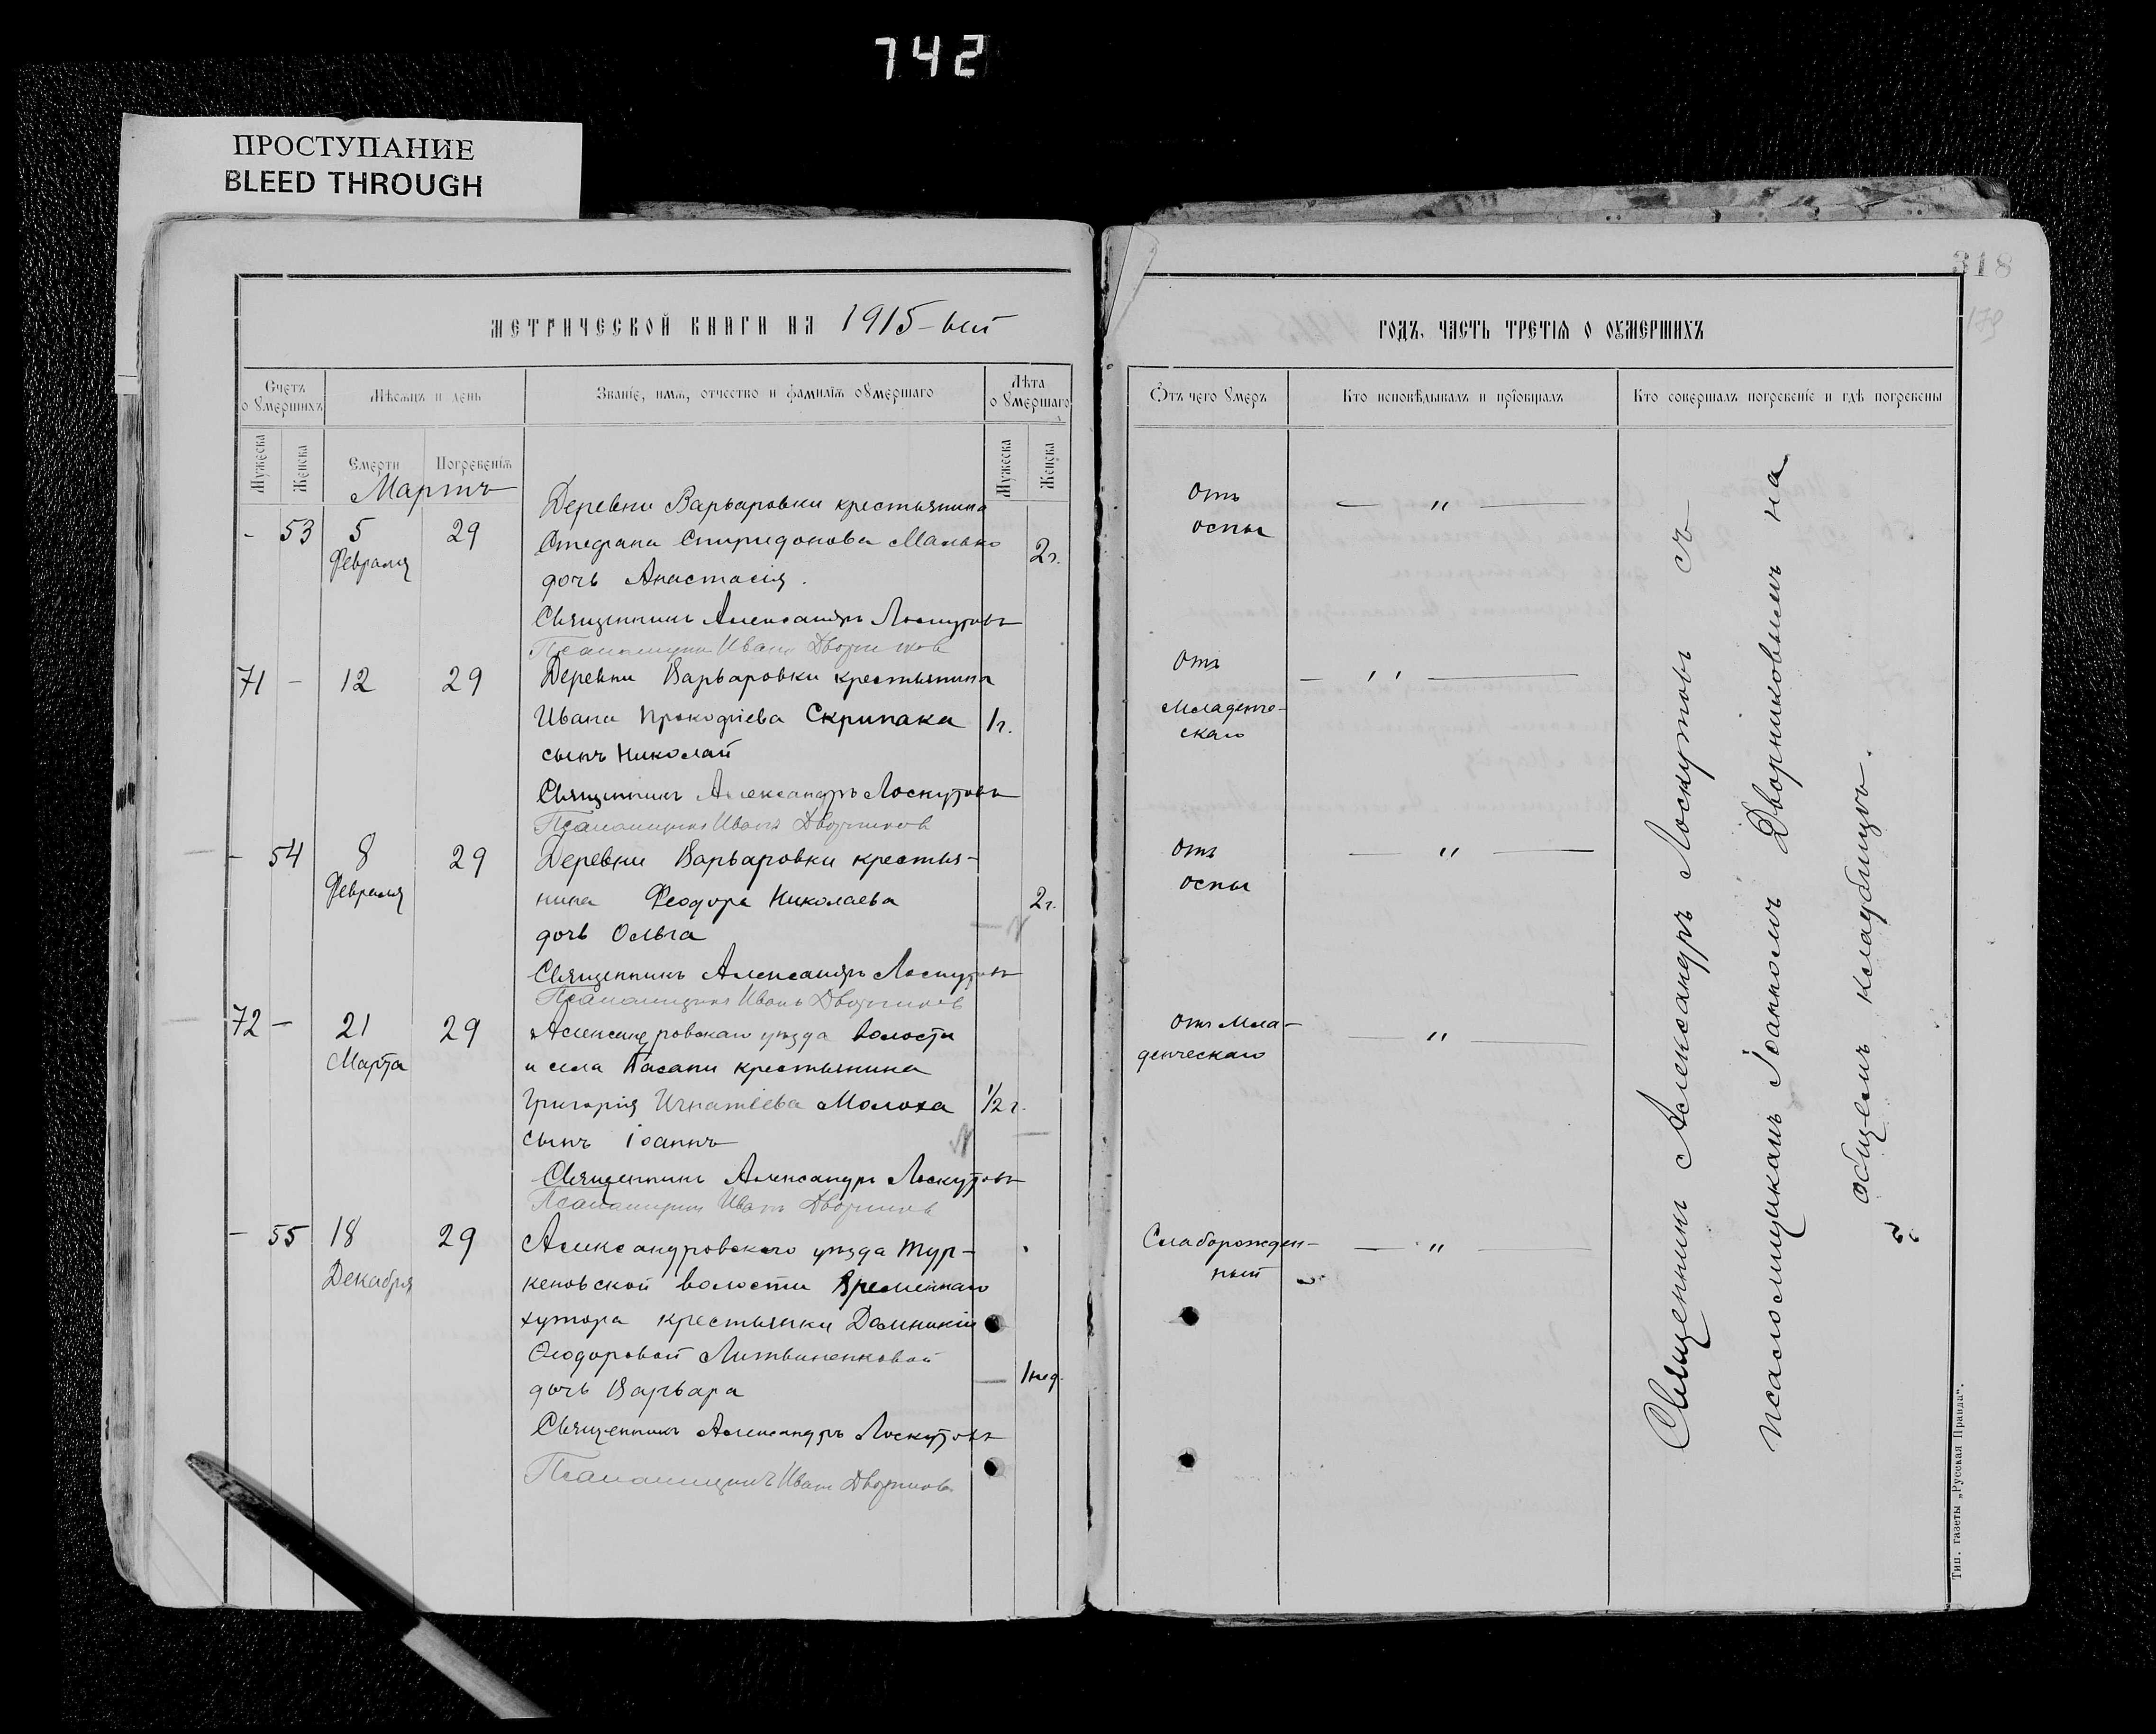 742
ПРОСТУПАНИЕ
BLEED THROUGH
МЕТРИЧЕСКОЙ КНИГИ НА 1915-ый
Счетъ
о ꙋмершихъ
Мѣсяцъ и день
Званіе, имѧ, отчество и фамилїѧ оꙋмершаго
Лѣта
оꙋмершаго
Мужеска
Женска
Смерти
Погребенїѧ
Мужеска
Женска
Мартъ
- 53 5 29
Февраля
Деревни Варваровки крестьянина
Стефана Спиридонова Малько
дочь Анастасія.
2 г.
Священникъ Александръ Лоскутовъ
Псаломщикъ Иванъ Дворниковъ
71 - 12 29
Деревни Варваровки крестьянина
Ивана Прокофіева Скрипака 1 г.
сынъ Николай
Священникъ Александръ Лоскутовъ
Псаломщикъ Иванъ Дворниковъ
- 54 8 29
Февраля
Деревни Варваровки крестья-
нина Феодора Николаева 2 г.
дочь Ольга
Священникъ Александръ Лоскутовъ
Псаломщикъ Иванъ Дворниковъ
72 - 21 29
Марта
Александровскаго уѣзда волости
и села Басани крестьянина
Григорія Игнатіева Молоха 1/2 г.
сынъ Іоаннъ
Священникъ Александръ Лоскутовъ
Псаломщикъ Иванъ Дворниковъ
- 55 18 29
Декабря
Александровскаго уѣзда Тур-
кеновской волости Временнаго
хутора крестьянки Домникіи
Ѳеодоровой Литвиненковой
дочь Варвара 1 нед.
Священникъ Александръ Лоскутовъ
Псаломщикъ Иванъ Дворниковъ
318
179
ГОДЪ. ЧАСТЬ ТРЕТІѦ О ОУМЕРШИХЪ
Ѿтъ чего ꙋмеръ
Кто исповѣдывалъ и прїобщалъ
Кто совершалъ погребенїе и гдѣ погребены
Отъ
оспы
— " —
Отъ
младенче-
скаго
— " —
Отъ
оспы
— " —
Отъ мла-
денческаго
— " —
Слаборожден-
ный
— " —
Священникъ Александръ Лоскутовъ съ
псаломщикомъ Іоанномъ Дворниковымъ на
общемъ кладбищѣ.
Тип. газеты „Русская Правда".